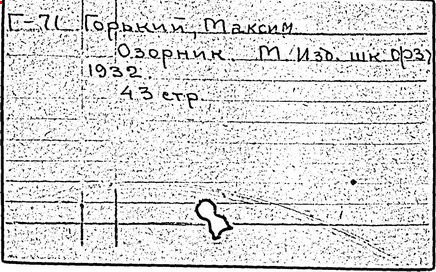 Г-71 Горький, Максим.
Озорник. М. Изд. шк. ФЗУ
1932.
43 стр.